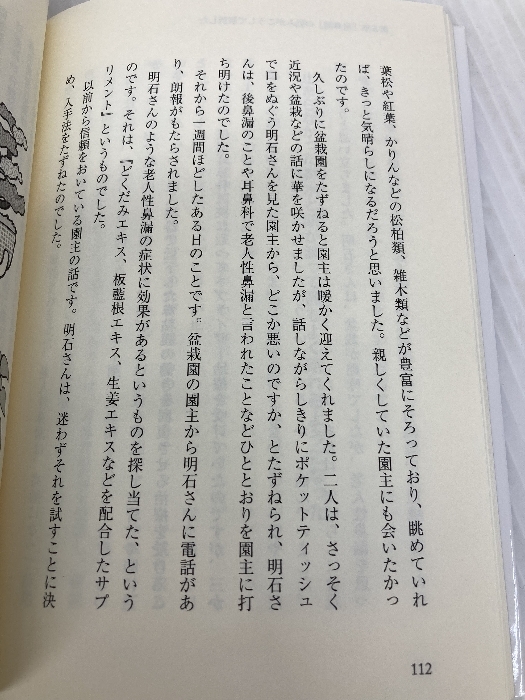 葉松や紅葉、かりんなどの松柏類、雑木類などが豊富にそろっており、眺めていれ
ば、きっと気晴らしになるだろうと思いました。親しくしていた園主にも会いたかっ
たのです。
久しぶりに盆栽園をたずねると園主は暖かく迎えてくれました。二人は、さっそく
近況や盆栽などの話に華を咲かせましたが、話しながらしきりにポケットティッシュ
で口をぬぐう明石さんを見た園主から、どこか悪いのですか、とたずねられ、明石さ
んは、後鼻漏のことや耳鼻科で老人性鼻漏と言われたことなどひととおりを園主に打
ち明けたのでした。
それから一週間ほどしたある日のことです。盆栽園の園主から明石さんに電話があ
り、朗報がもたらされました。
明石さんのような老人性鼻漏の症状に効果があるというものを探し当てた、という
のです。それは、『どくだみエキス、板藍根エキス、生姜エキスなどを配合したサプ
リメント』というものでした。
以前から信頼をおいている園主の話です。明石さんは、迷わずそれを試すことに決
め、入手法をたずねたのでした。
112